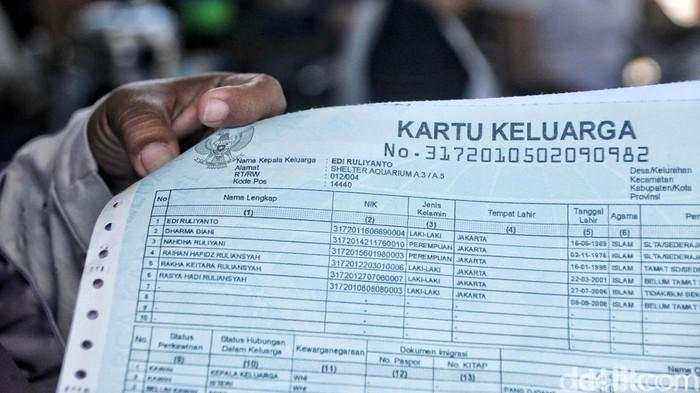 KARTU KELUARGA
No. 3172010502090982
Nama Kepala Keluarga : EDI RULIYANTO
Alamat : SHELTER AQUARIUM A.3 / A.5
RT/RW : 012/004
Kode Pos : 14440
Desa/Kelurahan
Kecamatan
Kabupaten/Kota
Provinsi
No Nama Lengkap NIK Jenis Kelamin Tempat Lahir Tanggal Lahir Agama
(1) (2) (3) (4) (5) (6)
1 EDI RULIYANTO 3172011606890004 LAKI-LAKI JAKARTA ISLAM
2 DHARMA DIANI 3172014211760010 PEREMPUAN JAKARTA ISLAM
3 NAHDHA RULIYANI 3172015601980003 PEREMPUAN JAKARTA ISLAM
4 RAIHAN HAFIDZ RULIANSYAH 3172012203010006 LAKI-LAKI JAKARTA ISLAM
5 RAKHA KEITARA RULIANSYAH 3172012707060007 LAKI-LAKI JAKARTA ISLAM
6 RASYA HADI RULIANSYAH 3172010808080003 LAKI-LAKI JAKARTA ISLAM
7
8
9
10
No. Status Perkawinan Status Hubungan Dalam Keluarga Kewarganegaraan Dokumen Imigrasi
No. Paspor No. KITAP
(9) (10) (11) (12) (13)
1 KAWIN KEPALA KELUARGA WNI
2 KAWIN ISTERI WNI
detikcom